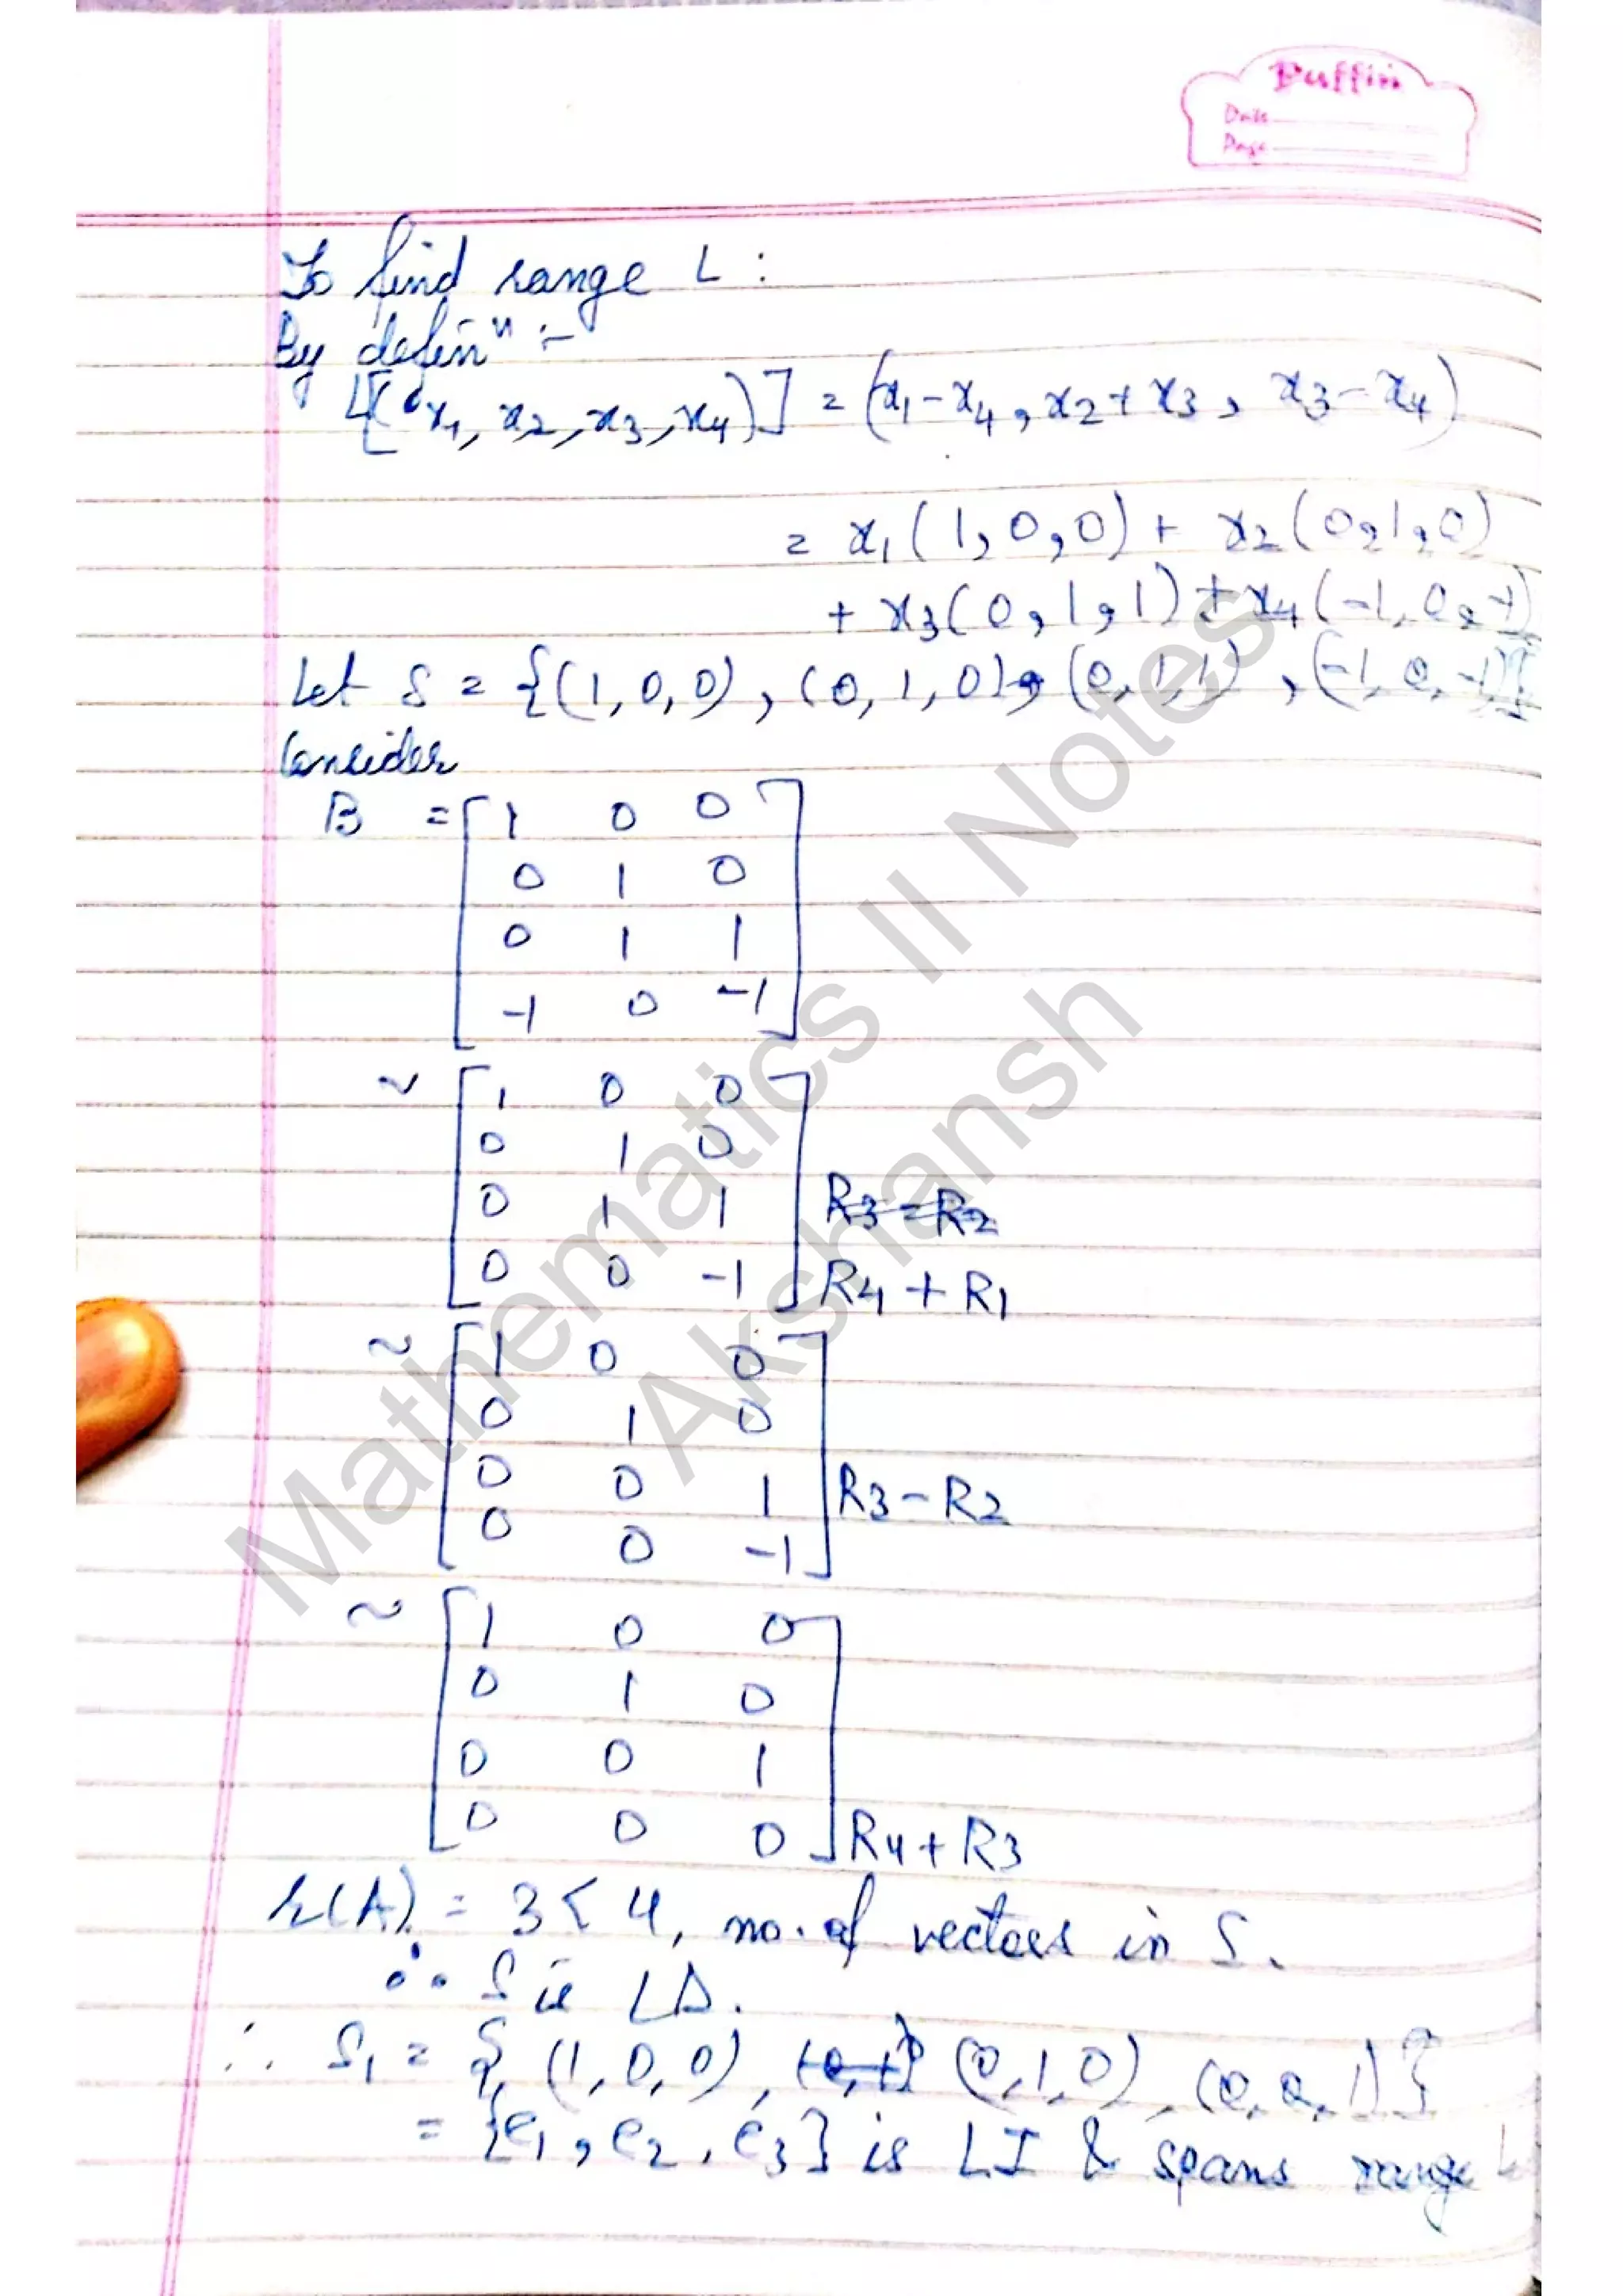 Puffin
Date
Page
To find range L :
By defin^n :-
L[(x1, x2, x3, x4)] = (x1 - x4, x2 + x3, x3 - x4)
= x1(1, 0, 0) + x2(0, 1, 0)
+ x3(0, 1, 1) + x4(-1, 0, -1)
Let S = {(1, 0, 0), (0, 1, 0), (0, 1, 1), (-1, 0, -1)}
Consider
B = [ 1 0 0
0 1 0
0 1 1
-1 0 -1 ]
~ [ 1 0 0
0 1 0
0 1 1 R3 - R2
0 0 -1 ] R4 + R1
~ [ 1 0 0
0 1 0
0 0 1 R3 - R2
0 0 -1 ]
~ [ 1 0 0
0 1 0
0 0 1
0 0 0 ] R4 + R3
r(A) = 3 < 4, no. of vectors in S.
∴ S is LD.
∴ S1 = {(1, 0, 0), (0, 1, 0), (0, 0, 1)}
= {e1, e2, e3} is LI & spans range L
Mathematics II Notes
Akshansh